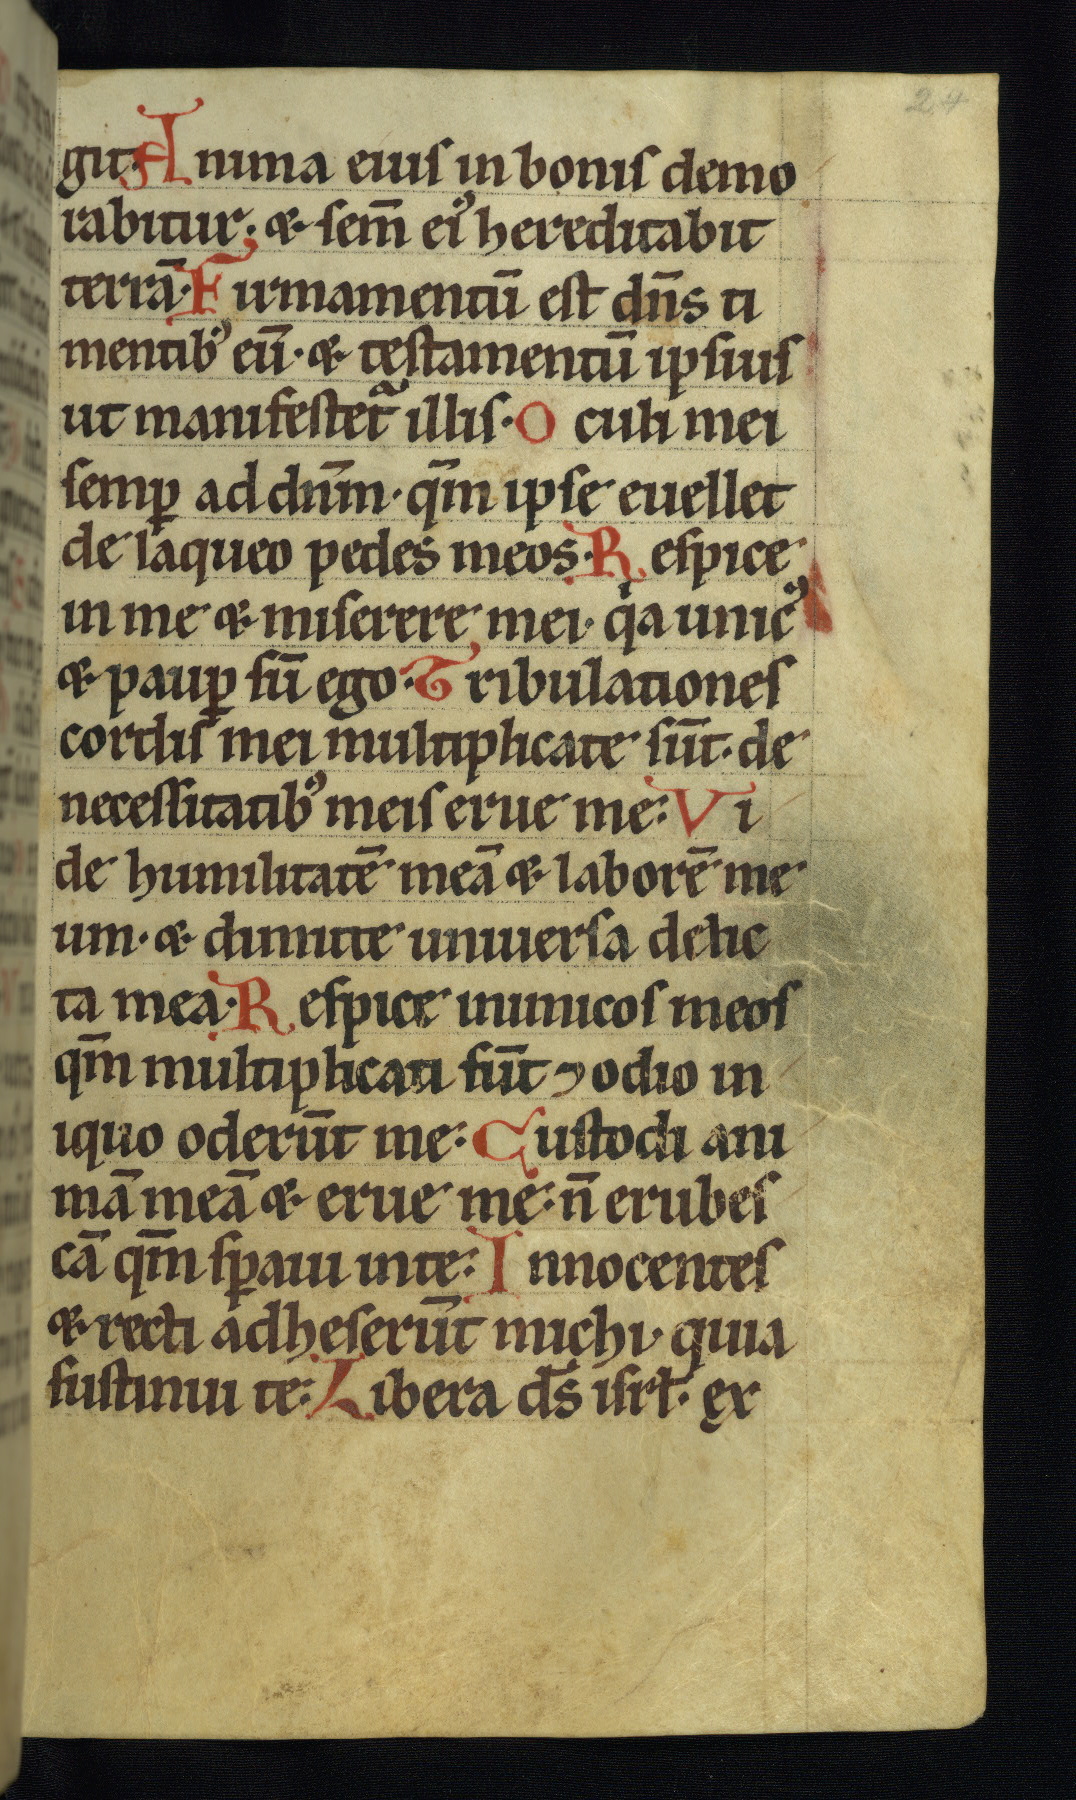 24
git. Anima eiuſ in boniſ demo
rabitur; & ſem̄ ei᷒ hereditabit
terrā. Firmamentū eſt dn̄s ti
mentib᷒ eū. & teſtamentū ipſiuſ
ut manifeſtet᷑ illiſ. Oculi mei
ſemꝑ ad dn̄m. qm̄ ipſe euellet
de laqueo pedes meos. Reſpice
in me & miſerere mei. qͥa unic᷒
& pauꝑ ſū ego. Tribulationeſ
cordiſ mei multiplicate ſūt. de
neceſſitatib᷒ meiſ erue me: Vi
de humilitatē meā & laborē me
um. & dimitte uniuerſa delic
ta mea. Reſpice inimicoſ meoſ
qm̄ multiplicati ſūt ⁊ odio in
iquo oderūt me: Cuſtodi ani
mā meā & erue me: n̄ erubeſ
cā qm̄ ſꝑaui in te: Innocenteſ
& recti adheſerūt michi. quia
ſuſtinui te: Libera ds̄ iſrl̄. ex